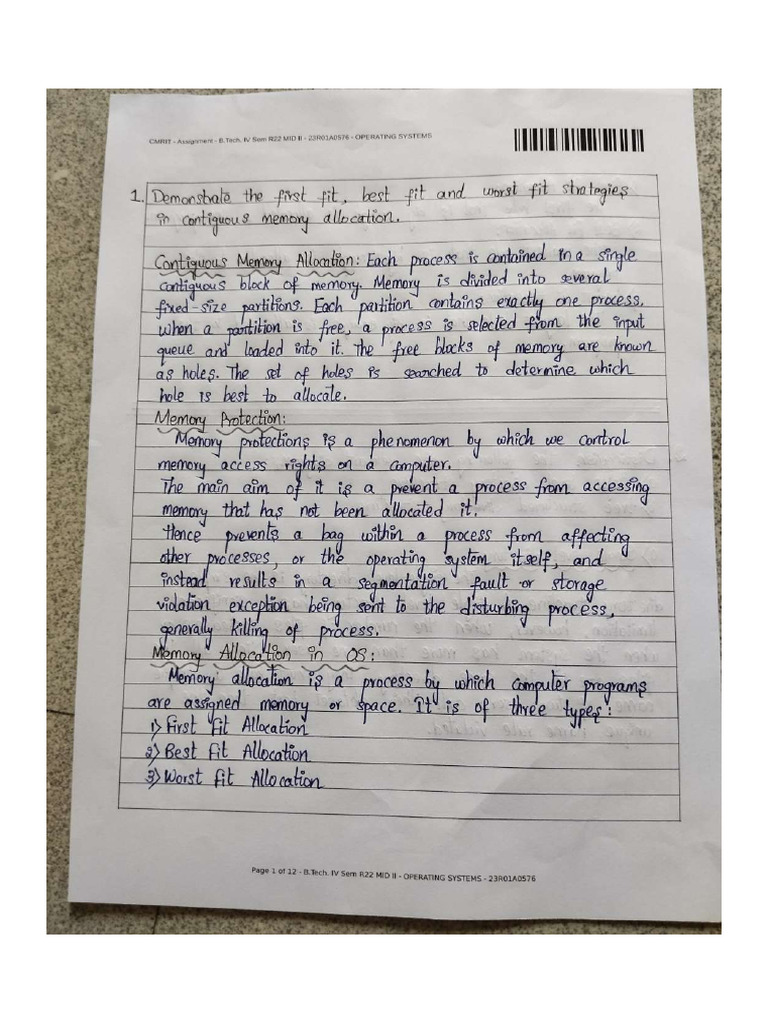 CMRIT - Assignment - B.Tech. IV Sem R22 MID II - 23R01A0576 - OPERATING SYSTEMS
1. Demonstrate the first fit, best fit and worst fit strategies
in contiguous memory allocation.
Contiguous Memory Allocation: Each process is contained in a single
contiguous block of memory. Memory is divided into several
fixed-size partitions. Each partition contains exactly one process.
When a partition is free, a process is selected from the input
queue and loaded into it. The free blocks of memory are known
as holes. The set of holes is searched to determine which
hole is best to allocate.
Memory Protection:
Memory protections is a phenomenon by which we control
memory access rights on a computer.
The main aim of it is a prevent a process from accessing
memory that has not been allocated it.
Hence prevents a bag within a process from affecting
other processes, or the operating system itself, and
instead results in a segmentation fault or storage
violation exception being sent to the disturbing process,
generally killing of process.
Memory Allocation in OS:
Memory allocation is a process by which computer programs
are assigned memory or space. It is of three types:
1) First Fit Allocation
2) Best Fit Allocation
3) Worst Fit Allocation
Page 1 of 12 - B.Tech. IV Sem R22 MID II - OPERATING SYSTEMS - 23R01A0576